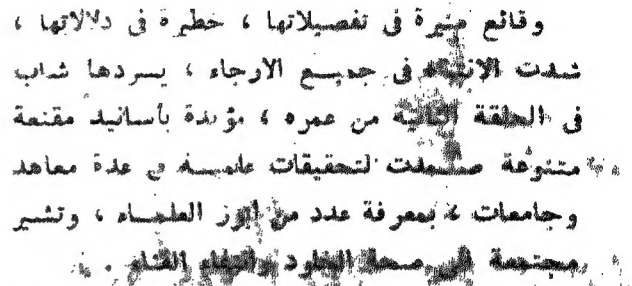 وقائع مثيرة فى تفصيلاتها ، خطيرة فى دلالاتها ،
شدت الانتباه فى جميع الارجاء ، يسردها شاب
فى الحلقة الثانية من عمره ، مؤيدة بأسانيد مقنعة
متنوعة صمدت لتحقيقات علمية فى عدة معاهد
وجامعات ، بمعرفة عدد من أبرز العلماء ، وتشير
مجتمعة الى صحة الخلود وانتفاء الفناء .